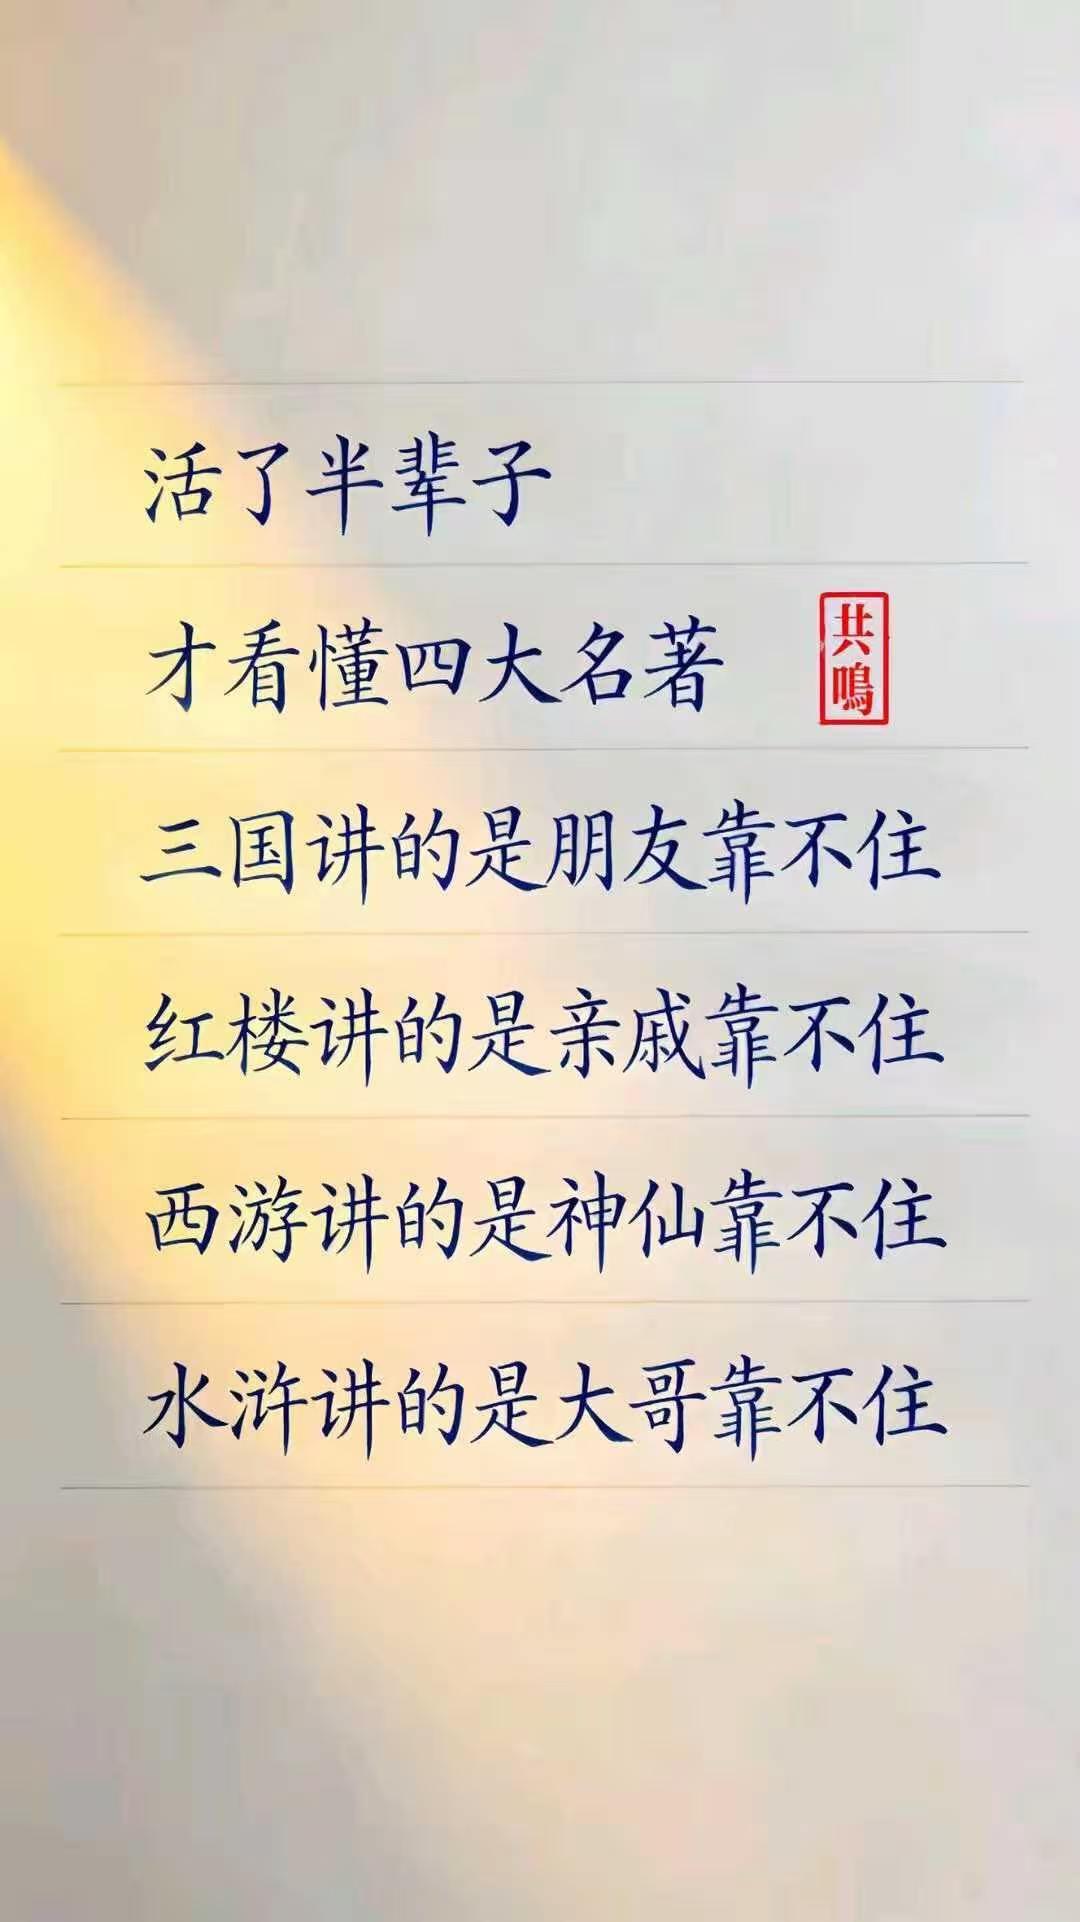 活了半辈子
才看懂四大名著
共鳴
三国讲的是朋友靠不住
红楼讲的是亲戚靠不住
西游讲的是神仙靠不住
水浒讲的是大哥靠不住